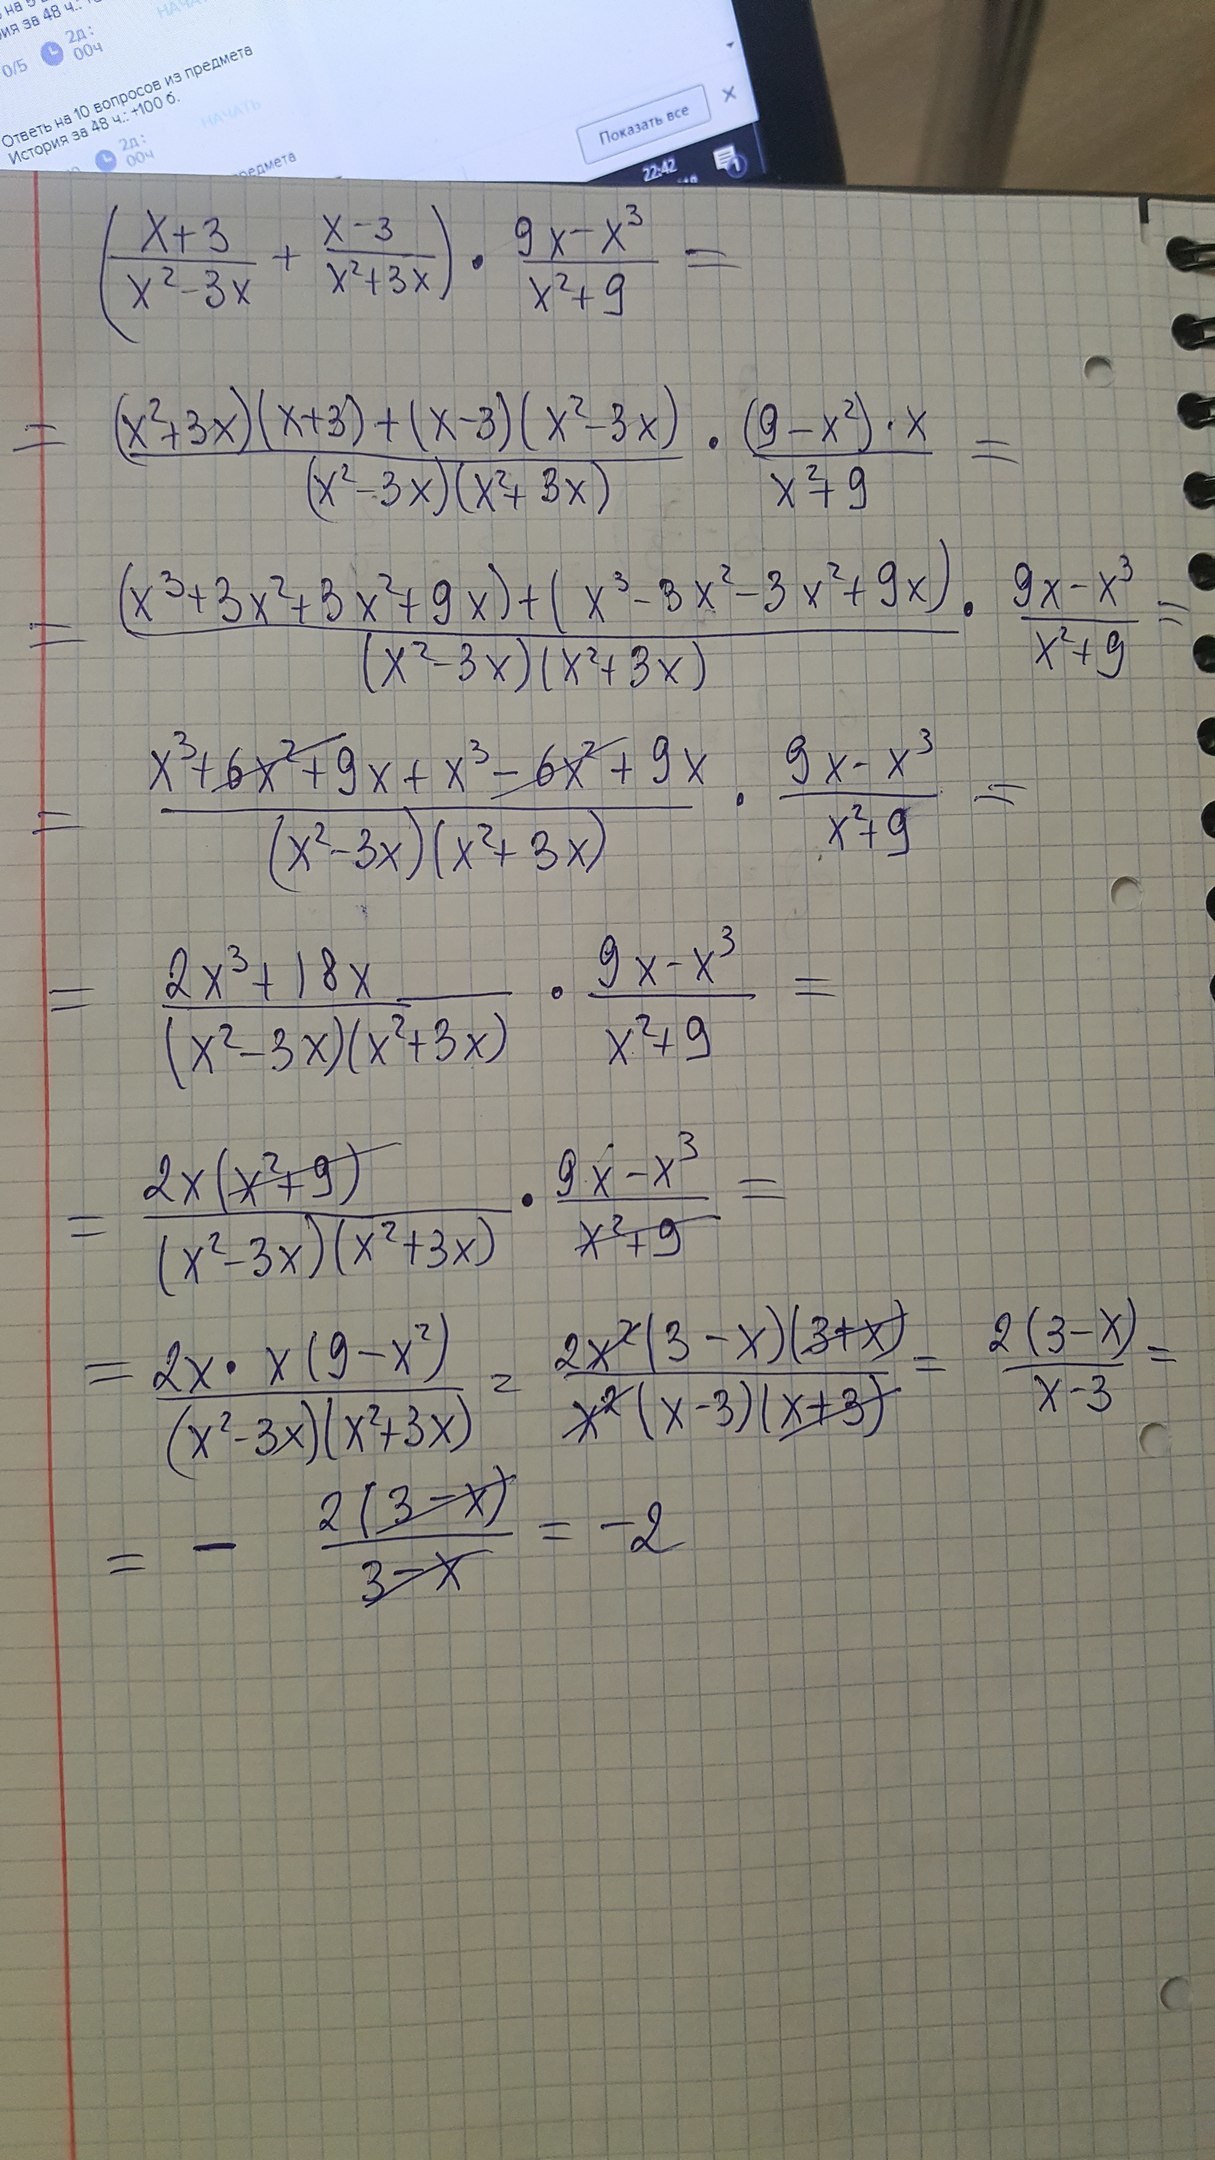 ия за 48 ч.:
НАЧА
0/5 2д: 00ч
Ответь на 10 вопросов из предмета
История за 48 ч.: +100 б.
НАЧАТЬ
2д: 00ч
Показать все ×
22:42
1
((x+3)/(x²-3x) + (x-3)/(x²+3x)) · (9x-x³)/(x²+9) =
= ((x²+3x)(x+3)+(x-3)(x²-3x))/((x²-3x)(x²+3x)) · ((9-x²)·x)/(x²+9) =
= ((x³+3x²+3x²+9x)+(x³-3x²-3x²+9x))/((x²-3x)(x²+3x)) · (9x-x³)/(x²+9) =
= (x³+6x²+9x+x³-6x²+9x)/((x²-3x)(x²+3x)) · (9x-x³)/(x²+9) =
= (2x³+18x)/((x²-3x)(x²+3x)) · (9x-x³)/(x²+9) =
= (2x(x²+9))/((x²-3x)(x²+3x)) · (9x-x³)/(x²+9) =
= (2x·x(9-x²))/((x²-3x)(x²+3x)) = (2x²(3-x)(3+x))/(x²(x-3)(x+3)) = (2(3-x))/(x-3) =
= - (2(3-x))/(3-x) = -2